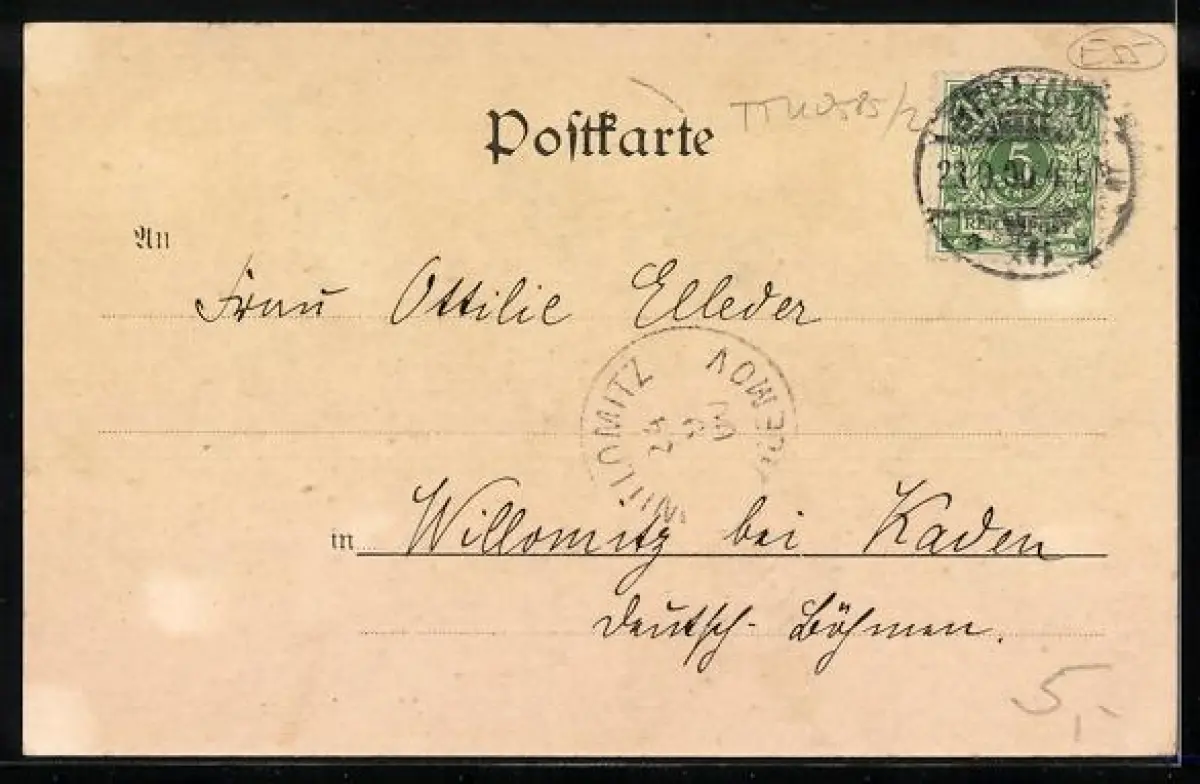 E55
Postkarte
5
REICHSPOST
An
Frau Ottilie Elleder
WILLOMITZ
24
9
00
in Willomitz bei Kaden
Deutsch-Böhmen.
5,-